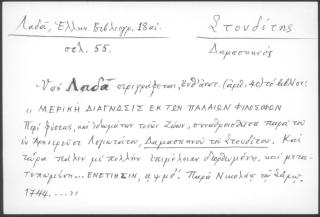 Λαδᾶ, Ἑλλην. Βιβλιογρ. 18 αἰ.
σελ. 55.
Στουδίτης
Δαμασκηνός
Ὑπὸ Λαδᾶ περιγράφεται, ἐνθ' ἀνωτ. (ἀριθ. 40) τὸ βιβλίον:
« ΜΕΡΙΚΗ ΔΙΑΓΝΩΣΙΣ ΕΚ ΤΩΝ ΠΑΛΑΙΩΝ ΦΙΛΟΣΟΦΩΝ
Περὶ φύσεως, καὶ ἰδιωμάτων τινῶν ζώων, συναθροισθεῖσα παρὰ τοῦ
ἐν Ἀρχιερεῦσι Λογιωτάτου, Δαμασκηνοῦ τοῦ Στουδίτου. Καὶ
τώρα πάλιν μὲ πολλὴν ἐπιμέλειαν διορθωμένη, καὶ μετα-
τυπωμένη... ΕΝΕΤΙΗΣΙΝ, αψμδ΄. Παρὰ Νικολάῳ τῷ Σάρῳ.
1744.... »